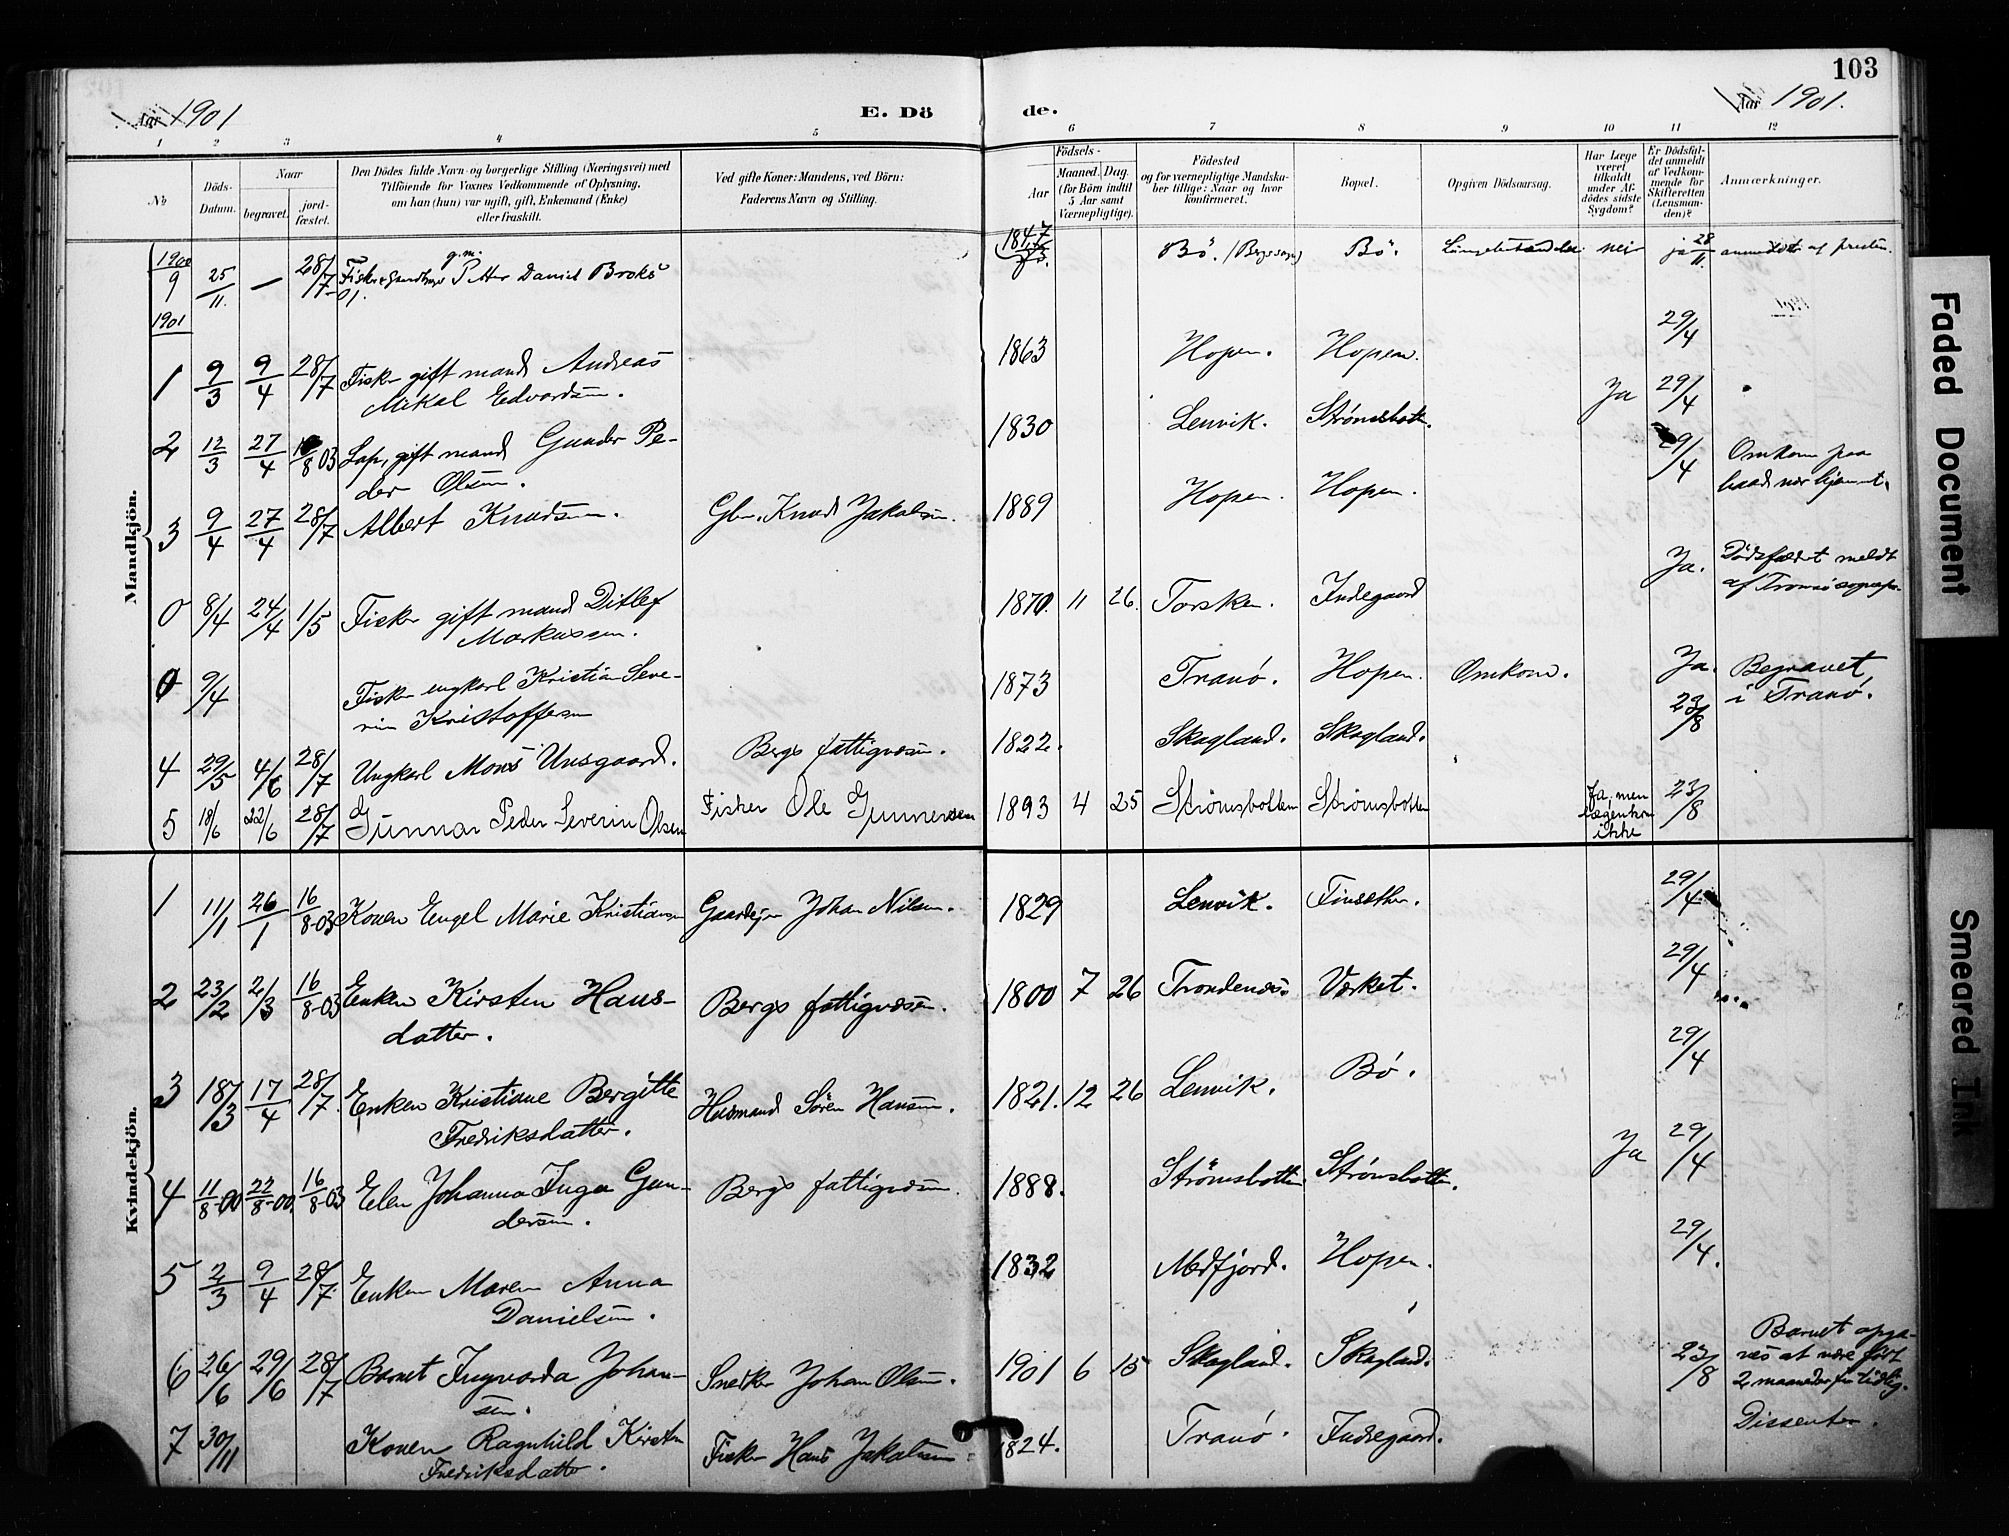 103
Aar 1901
E. Dö
de.
Aar 1901.
1 2 3 4 5 6 7 8 9 10 11 12
No
Döds-
Datum.
Naar
begravet.
jord-
fæstet.
Den Dödes fulde Navn og borgerlige Stilling (Næringsvei) med
Tilföiende for Voxnes Vedkommende af Oplysning,
om han (hun) var ugift, gift, Enkemand (Enke)
eller fraskilt.
Ved gifte Koner: Mandens, ved Börn:
Faderens Navn og Stilling.
Födsels-
Aar
Maaned. Dag.
(for Börn indtil
5 Aar samt
Værnepligtige).
Födested
og for værnepligtige Mandska-
ber tillige: Naar og hvor
konfirmeret.
Bopæl.
Opgiven Dödsaarsag.
Har Læge
været
tilkaldt
under Af-
dödes sidste
Sygdom?
Er Dödsfal-
det anmeldt
af Vedkom-
mende for
Skifteretten
(Lensman-
den)?
Anmærkninger.
Mandkjön.
1900
9 25/11. — 28/7 01. Fisker g.m. Petter Daniel Broks 1847 Bö. Bö. nei ja 28/11. af presten.
1901
1 9/3 9/4 28/7 Fisker gift mand Andreas 1863 Hopen. Hopen. 29/4
Mikal Edvardsen.
2 12/3 27/4 8 03 Lap, gift mand Gunder Pe- 1830 Lenvik. Strömsbotn. Ja 29/4
der Olsen.
3 9/4 27/4 28/7 Albert Knudsen. Gbr. Knud Jakobsen. 1889 Hopen. Hopen. 29/4 Omkom paa
0 8/4 24/4 1/5 Fisker gift mand Ditlef 1870. 11 26. Torsken. Indegaard Ja. Dödsfaldet meldt
Markussen. af Tromsö sognepr.
0 9/4 Fisker ungkarl Kristian Seve- 1873 Tranö. Hopen. Omkom. Ja. Begravet
rin Kristoffersen i Tranö.
4 29/5 4/6 28/7 Ungkarl Mons Unsgaard. Bergs fattigvæsen. 1822. Skagland. Skagland. 23/8
5 18/6 22/6 28/7 Gunnar Peder Severin Olsen Fisker Ole Gunnersen 1893 4 25 Strömsbotten Strömsbotten Ja, men 23/8
lægen kom
ikke
Kvindekjön.
1 11/1 26/1 16/8-03 Konen Engel Marie Kristiansen Gaardejer Johan Nilsen. 1829 Lenvik. Finsæther. 29/4
2 23/2 2/3 16/8-03 Enken Kirsten Hans- Bergs fattigvæsen. 1800 7 26 Trondenæs. Værket. 29/4
datter.
3 18/3 17/4 28/7. Enken Kristiane Bergitte Husmand Sören Hansen. 1821. 12 26 Lenvik. Bö. 29/4
Fredriksdatter.
4 11/8-00 22/8-00. 16/8-03 Elen Johanna Inga Gun- Bergs fattigvæsen. 1888. Strömsbotten. Strömsbotten. Ja 29/4
dersen.
5 2/3 9/4 28/7. Enken Maren Anna 1832 Medfjord. Hopen. 29/4.
Danielsen.
6 26/6 29/6 28/7 Barnet Ingvarda Johan- Snekker Johan Olsen. 1901 6 15 Skagland. Skagland. 23/8 Barnet opga-
sen. ves at være født
2 maaneder for tidlig.
7 30/11 Konen Ragnhild Kirsten Fisker Hans Jakobsen 1824. Tranö. Indregaard. Dissenter.
Fredriksdatter.
Faded Document
Smeared Ink